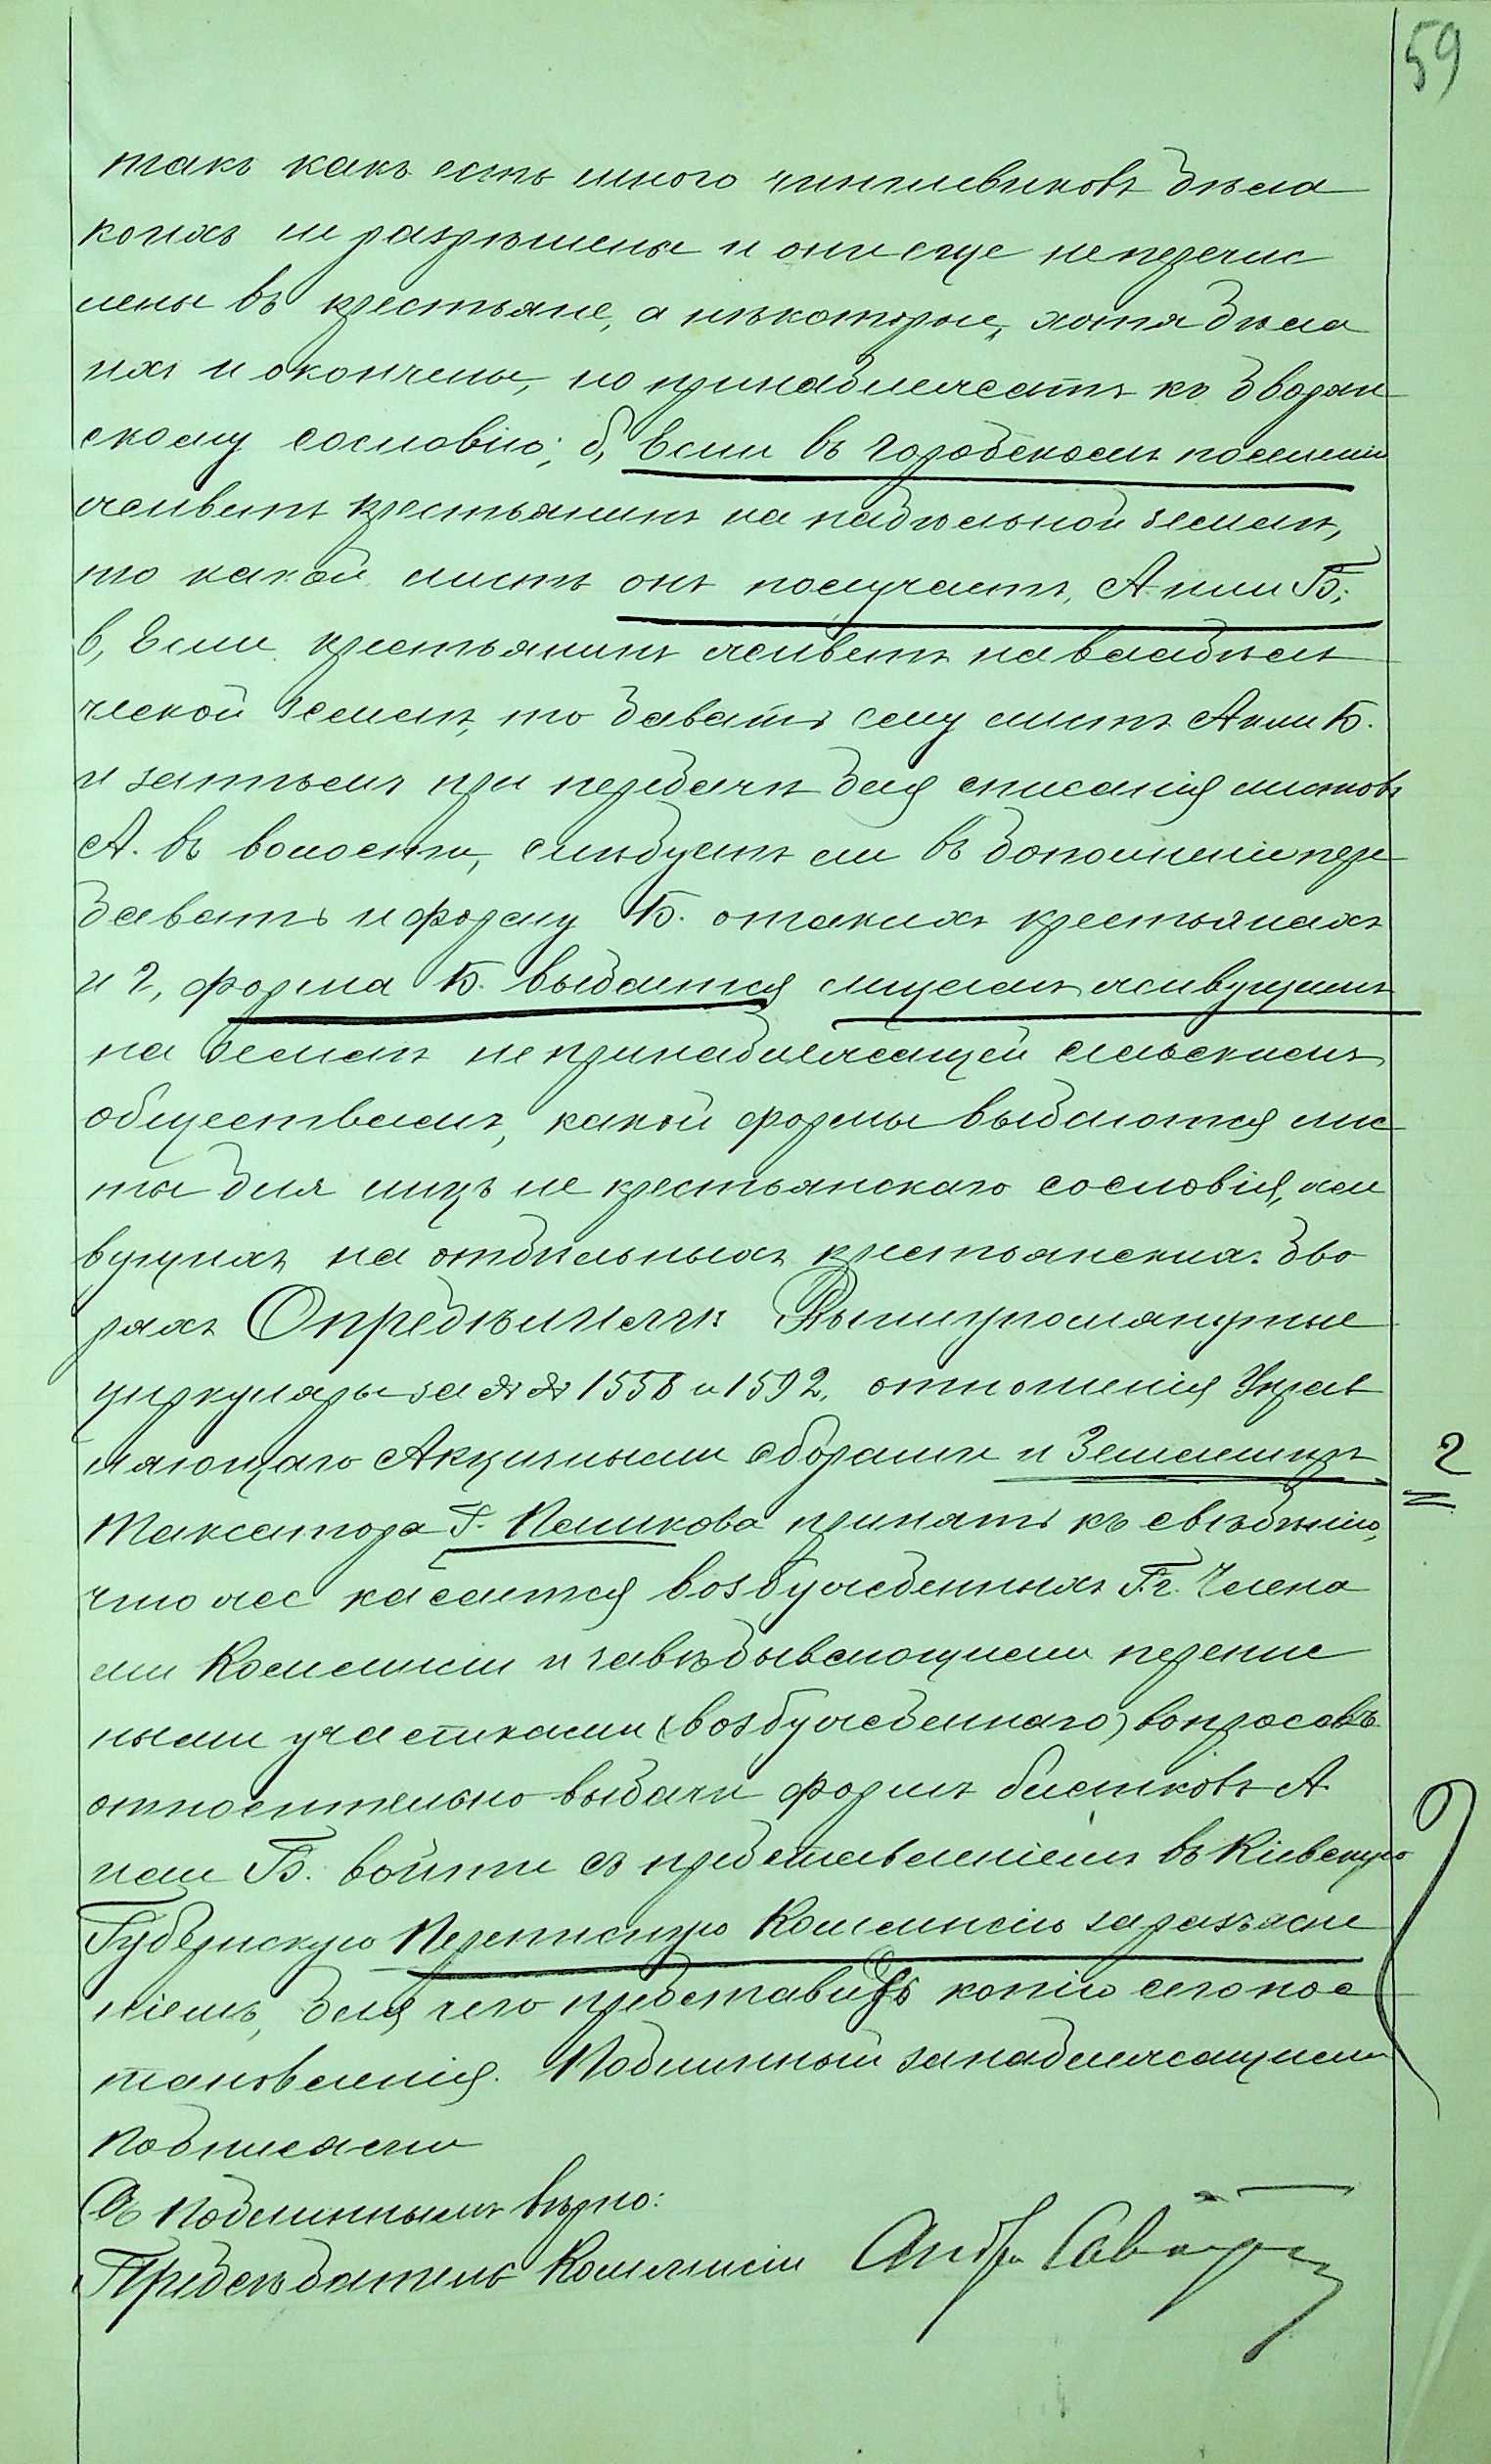 59
такъ какъ есть много чиншевиковъ дѣла
коихъ не разрѣшены и они еще неперечис
лены въ крестьяне, а нѣкоторые, хотя дѣла
ихъ и окончены, но принадлежатъ къ дворян
скому сословію; б, Если въ городскомъ поселеніи
живетъ крестьянинъ на надѣльной землѣ,
то какой листъ онъ получаетъ, А или Б;
в, Если крестьянинъ живетъ на владѣль
ческой землѣ, то давать ему листъ А или Б.
и затѣмъ при передачѣ для списанія листовъ
А. въ волости, слѣдуетъ ли въ дополненіе пере
давать и форму Б. о такихъ крестьянахъ
и г, форма Б. выдается лицамъ живущимъ
на землѣ не принадлежащей сельскимъ
обществамъ, какой формы выдаются лис
ты для лицъ не крестьянскаго сословія, жи
вущихъ на отдѣльныхъ крестьянскихъ дво
рахъ Опредѣлили: Вышеупомянутые
циркуляры за №№ 1558 и 1592, отношенія Управ
ляющаго Акцизными сборами и Землемѣръ
2
Таксатора Г. Пашкова принять къ свѣдѣнію,
что же касается возбужденныхъ Г.г. Члена
ми Коммисіи и завѣдывающими перепис
ными участками (возбужденнаго) вопросовъ
относительно выдачи формъ листковъ А
или Б. войти съ представленіемъ въ Кіевскую
Губернскую Переписную Коммисію за разъясне
ніемъ, для чего представить копію сего пос
тановленія. Подлинный за надлежащими
подписями
Съ подлиннымъ вѣрно:
Предсѣдатель Коммисіи